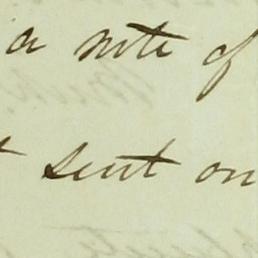 a note of
sent on